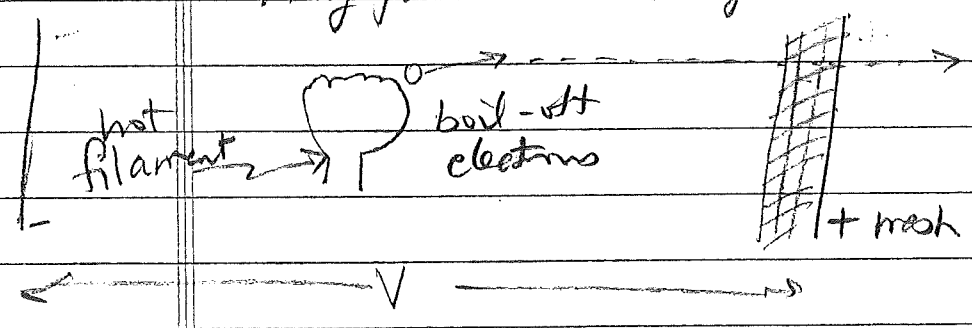 hot
filament
boil-off
electrons
-
+ mesh
V